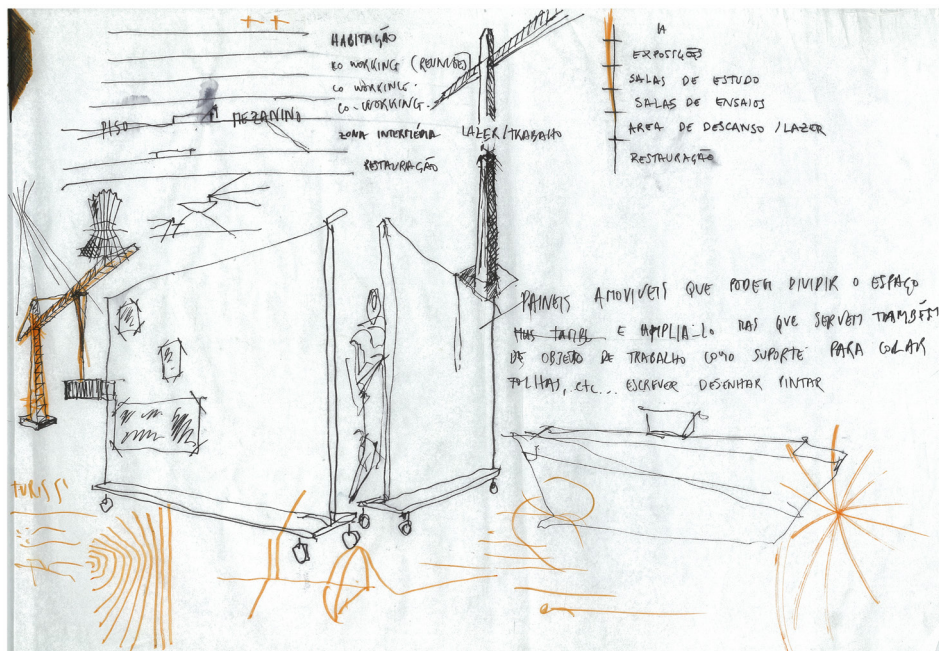 HABITAÇÃO
CO WORKING (REUNIÕES)
CO WORKING.
CO-WORKING.
PISO
MEZANINO
ZONA INTERMÉDIA LAZER/TRABALHO
RESTAURAÇÃO
EXPOSIÇÕES
SALAS DE ESTUDO
SALAS DE ENSAIOS
AREA DE DESCANSO / LAZER
RESTAURAÇÃO
PAINEIS AMOVIVEIS QUE PODEM DIVIDIR O ESPAÇO
E AMPLIA-LO MAS QUE SERVEM TAMBÉM
DE OBJETO DE TRABALHO COMO SUPORTE PARA COLAR
FOLHAS, etc... ESCREVER DESENHAR PINTAR